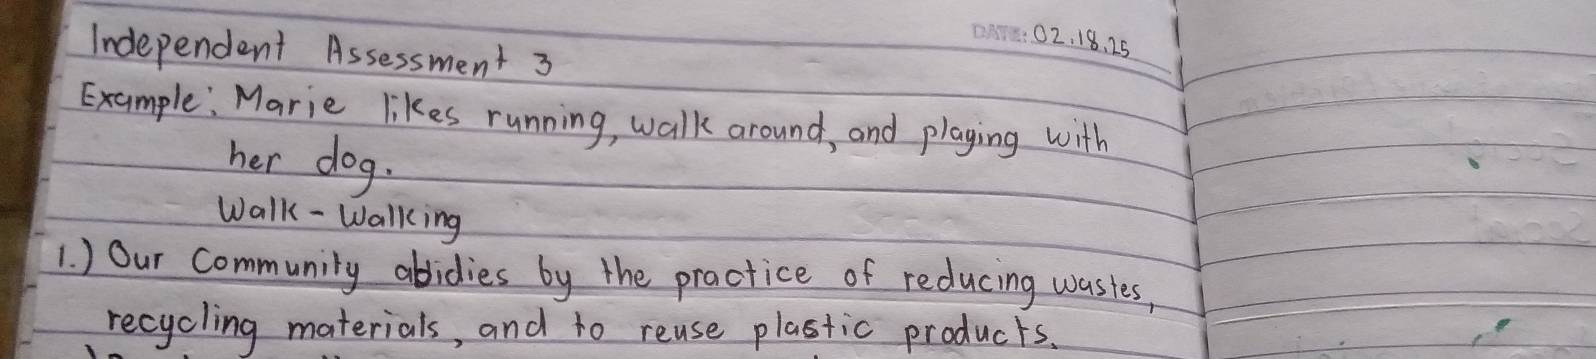 DATE: 02.18.25
Independent Assessment 3
Example: Marie likes running, walk around, and playing with
her dog.
Walk - Walking
1.) Our Community abidies by the practice of reducing wastes,
recycling materials, and to reuse plastic products.